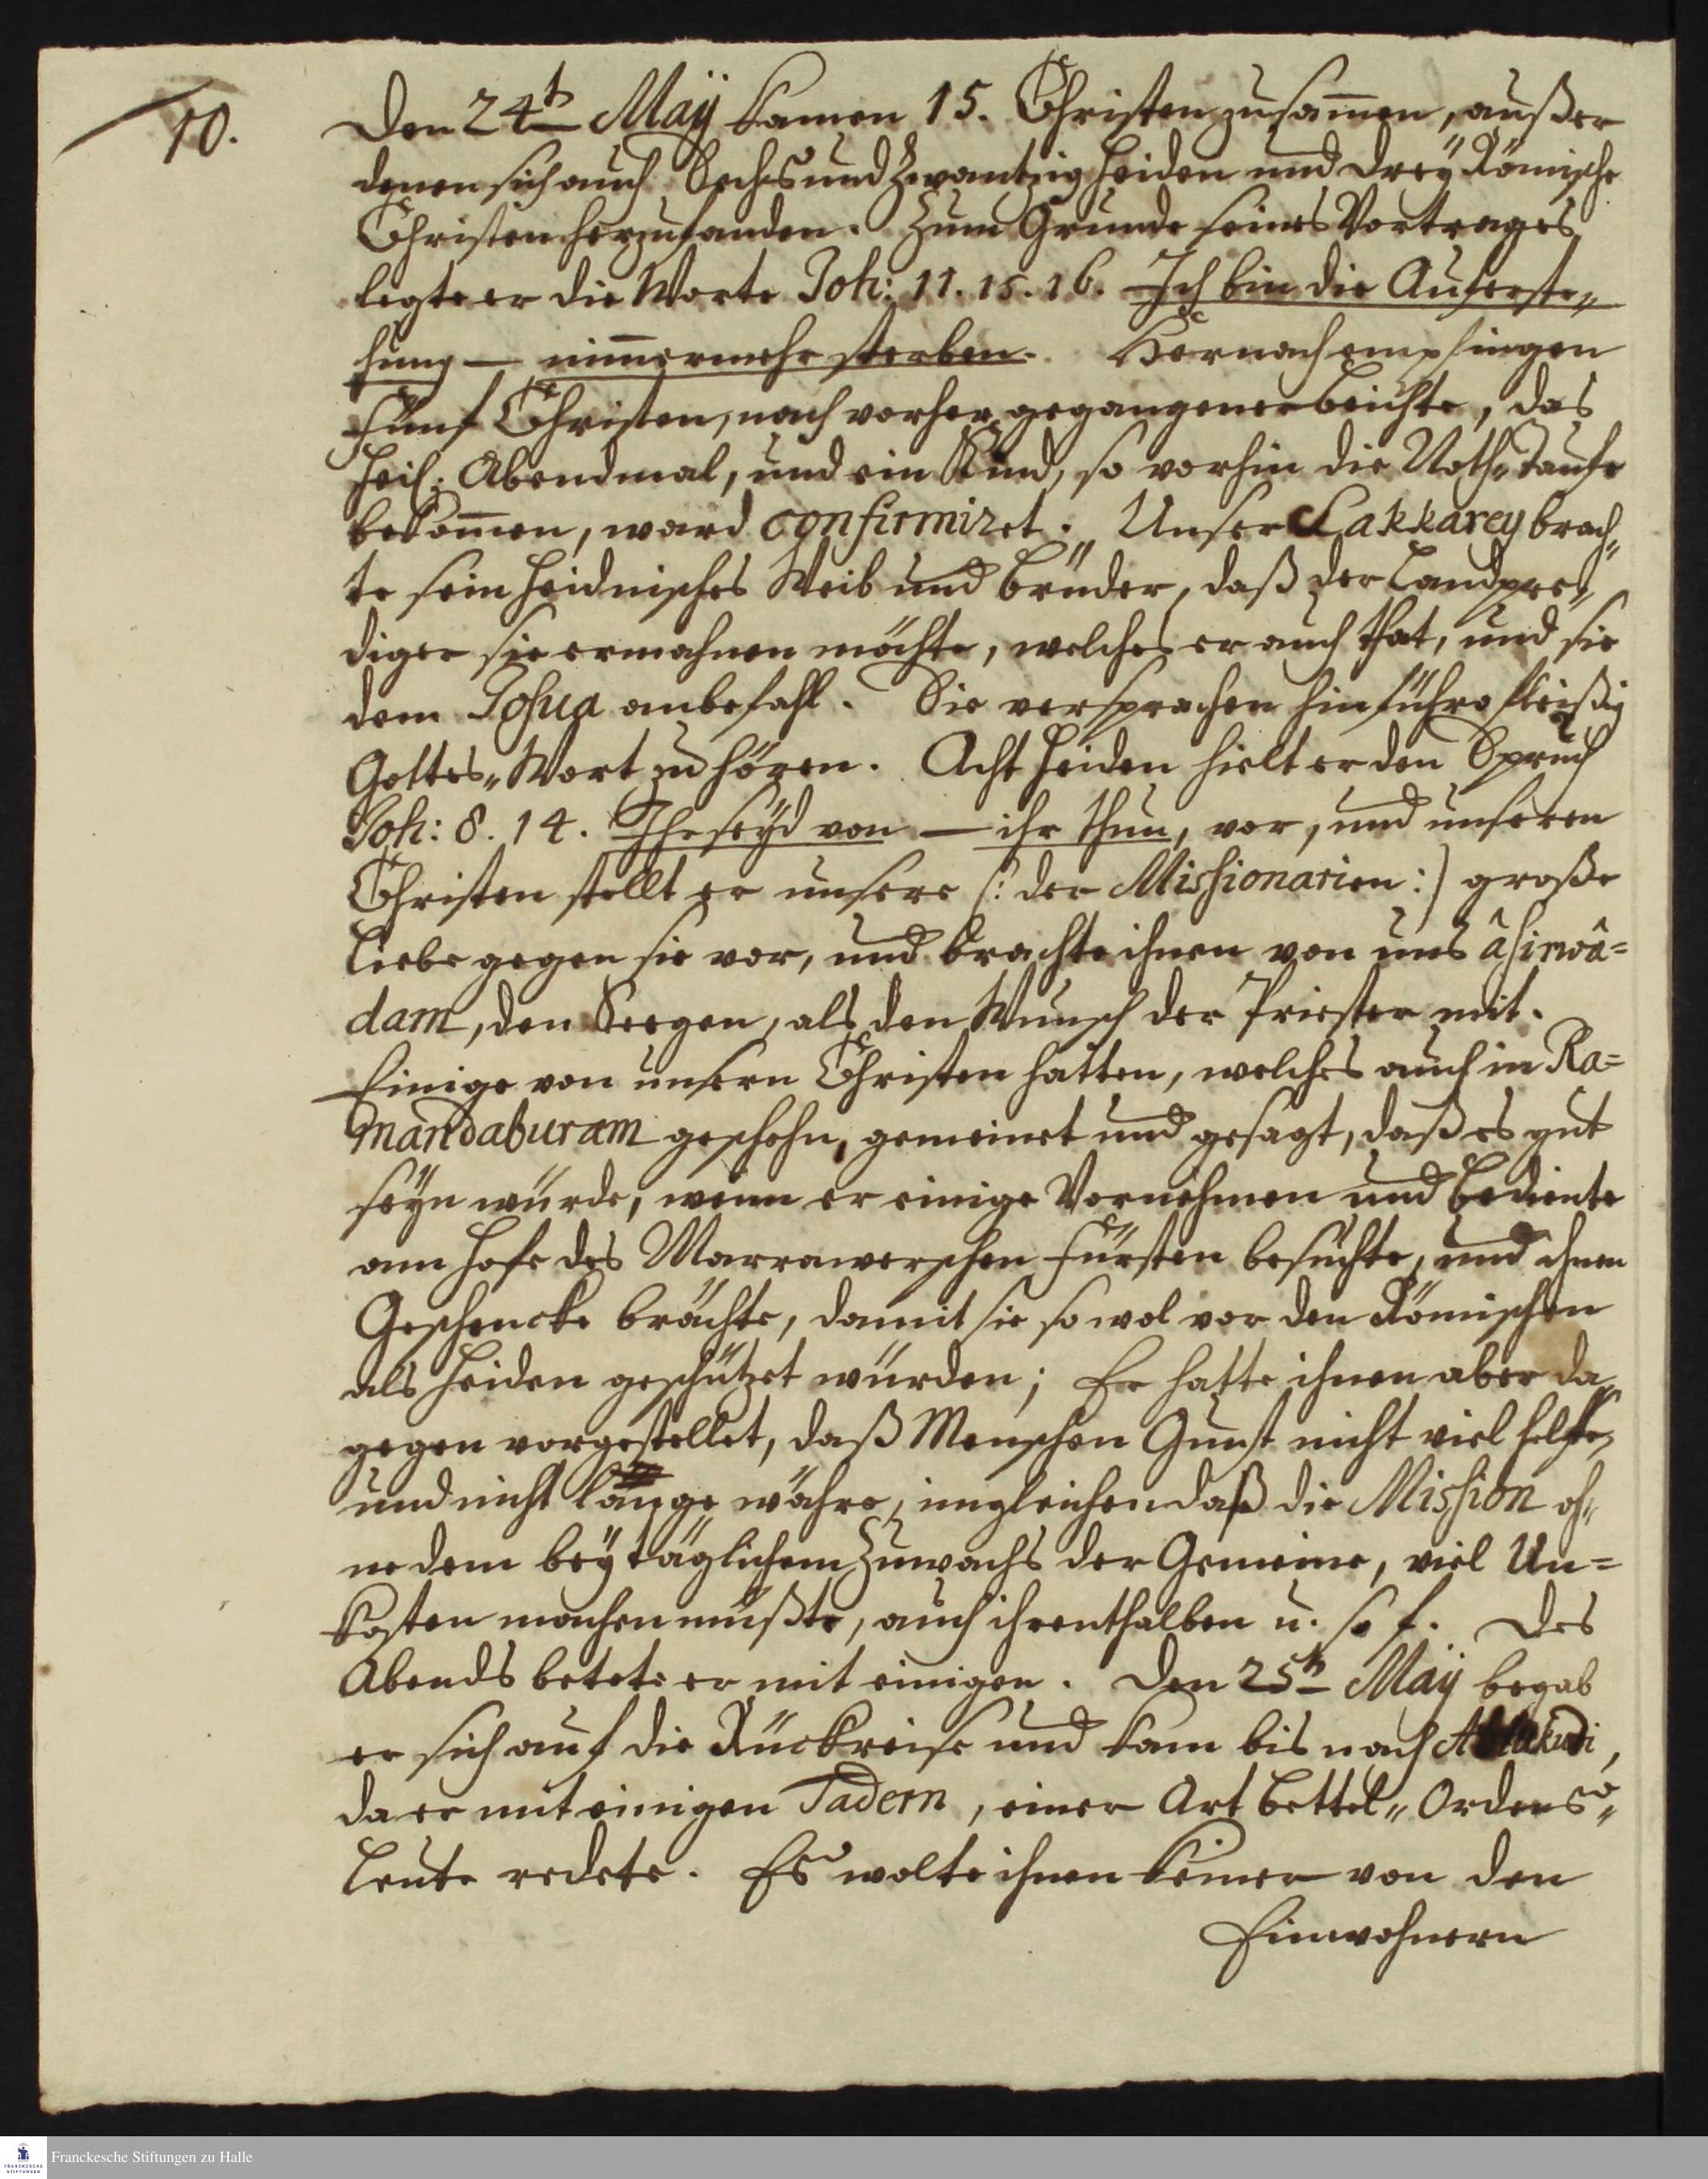 10.
Den 24t May kamen 15. Christen zusam̄en, außer
denen sich auch Sechs und Zwantzig Heiden und drey Römische
Christen herzufanden. Zum Grunde seines Vortrages
legte er die Worte Joh: 11. 15. 16. Ich bin die Auferste„
hung — nim̄ermehr sterben. Hernach empfingen
fünf Christen, nach vorher gegangener beichte, das
Heil: Abendmal, und ein Kind, so vorhin die Noth„Taufe
bekom̄en, ward confirmiret. Unser Sakkarey brach„
te sein Heidnisches Weib und brüder, daß der Landpre„
diger sie ermahnen möchte, welches er auch that, und sie
dem Josua anbefahl. Sie versprachen hinführo fleißig
Gottes„Wort zu hören. Acht Heiden hielt er den Spruch
Joh: 8. 14. Ihr seyd von — ihr thun, vor, und unseren
Christen stellt er unsere (: der Missionarien :) große
Liebe gegen sie vor, und brachte ihnen von uns âsirwâ=
dam, den Seegen, als den Wunsch der Priester mit.
Einige von unsern Christen hatten, welches auch in Ra=
manadaburam geschehn, gemeinet und gesagt, daß es gut
seyn würde, wenn er einige Vornehmen und bediente
am Hofe des Marrawerschen Fürsten besuchte, und ihnen
Geschencke brächte, damit sie so wol vor den Römischen
als Heiden geschützet würden; Er hatte ihnen aber da„
gegen vorgestellet, daß Menschen Gunst nicht viel helfe,
und nicht lange währe, imgleichen daß die Mission oh„
ne dem bey täglichem Zuwachs der Gemeine, viel Un=
kosten machen müßte, auch ihrenthalben u. so f. Des
Abends betete er mit einigen. Den 25t May begab
er sich auf die Rückreise und kam bis nach
da er mit einigen Tadern, einer Art bettel„Ordens„
Leute redete. Es wolte ihnen keiner von den
Einwohnern
Franckesche Stiftungen zu Halle
FRANCKESCHE
STIFTUNGEN